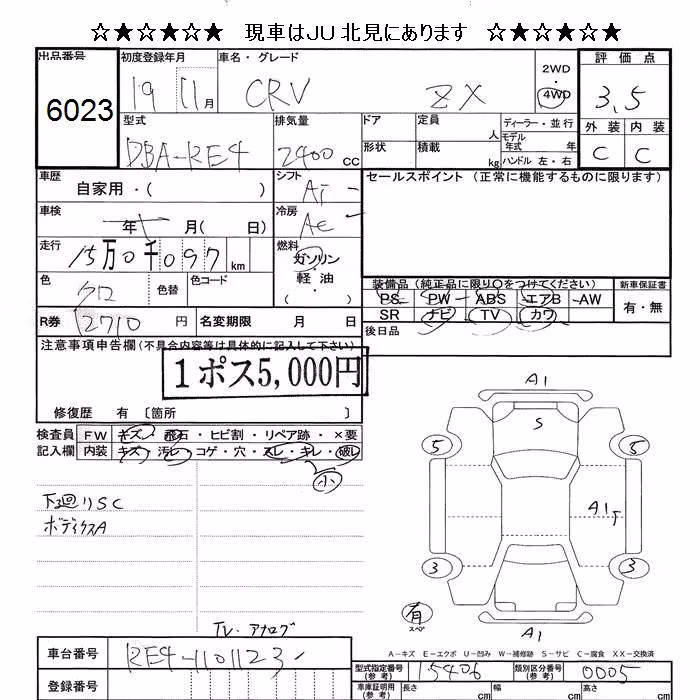 ☆★☆★☆★ 現車はJU北見にあります ☆★☆★☆★
出品番号 6023
初度登録年月 19 11月
車名・グレード CRV ZX
2WD・4WD
評価点 3.5
外装 C 内装 C
型式 DBA-RE4
排気量 2400cc
ドア 形状
定員 人 積載 kg
ディーラー・並行
モデル年式 年
ハンドル 左・右
車歴 自家用・( )
シフト AT
セールスポイント (正常に機能するものに限ります)
車検 年 月( 日)
冷房 AC
走行 15万0千097km
燃料 ガソリン・軽油・( )
色 クロ 色替 色コード
R券 12710円 名変期限 月 日
装備品 (純正品に限り○をつけてください)
PS PW ABS エアB AW
SR ナビ TV カワ
新車保証書 有・無
後日品
注意事項申告欄 (不具合内容等は具体的に記入して下さい)
1ポス5,000円
修復歴 有 〔箇所 〕
検査員記入欄
FW キズ・飛石・ヒビ割・リペア跡・×要
内装 キズ・汚レ・コゲ・穴・スレ・キレ・破レ
小
下廻リSC
ボディクスA
A1
S
5 5
A1
3 3
有 スペア
A1
TV・アナログ
A-キズ E-エクボ U-凹み W-補修跡 S-サビ C-腐食 XX-交換済
車台番号 RE4-1101123
登録番号
型式指定番号(参考) 15406 類別区分番号(参考) 0005
車庫証明用(参考) 長さ cm 幅 cm 高さ cm